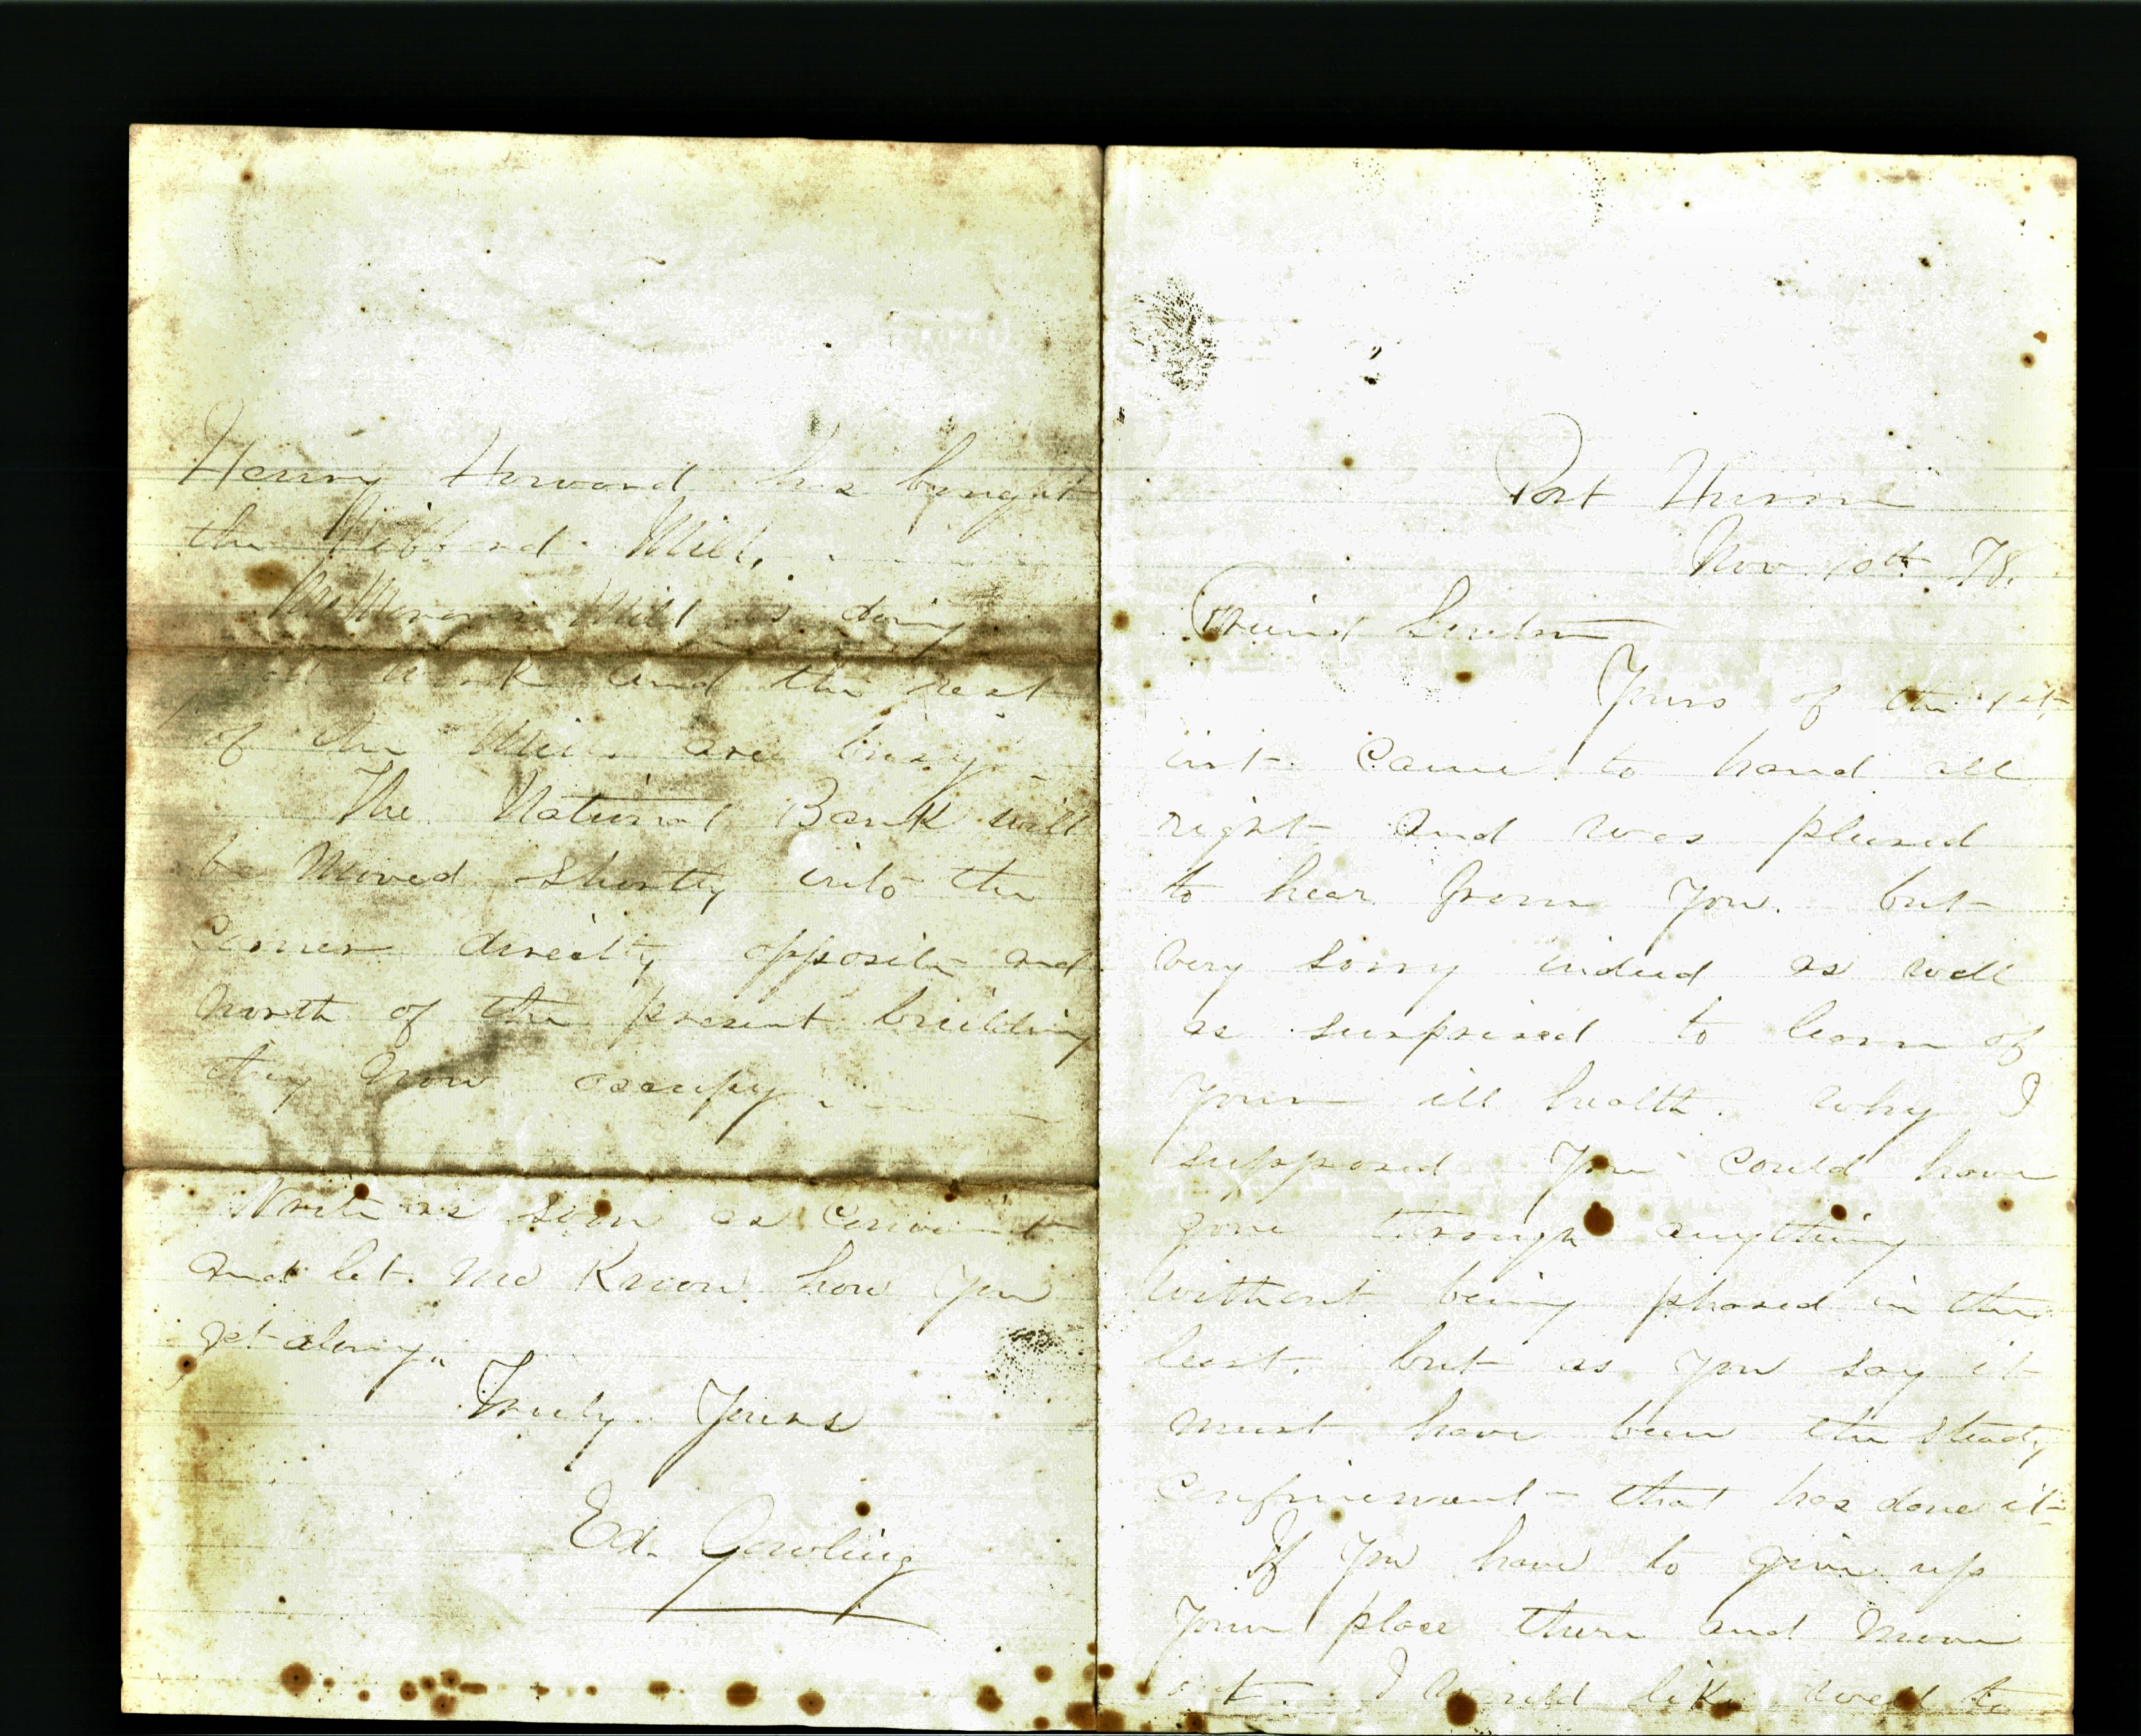 Port Huron
Nov 10th 78.
Friend
Yours of the 1st
inst. Came to hand all
right and was pleased
to hear from you. but
very sorry indeed as well
as surprised to learn of
your ill health. Why I
supposed you could have
gone through anything
without being phased in the
least. but as you say it
must have been the steady
confinement that has done it
If you have to give up
your place there and move
out. I would like well to
Henry Howard has bought
the Hibbard Mill.
Mill is doing
work and the rest
of the Mills are busy
The National Bank will
be Moved Shortly into the
Corner directly opposite and
North of the present building
they now occupy.
Write as soon as
and let me Know how you
get along.
Truly Yours
Ed. Gowling